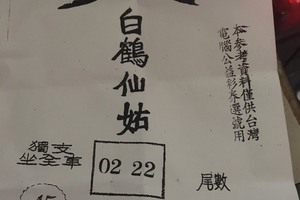 本參考資料僅供台灣
電腦公益彩券選號用
白鶴仙姑
獨支
坐全車
02 22
尾數
45